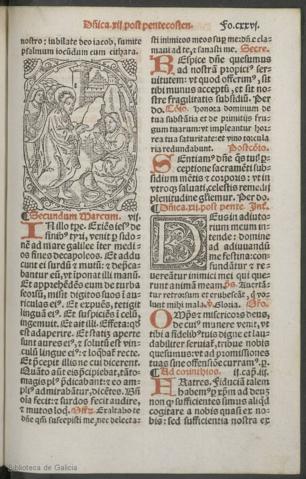 Dñica.xij.post pentecosten. Fo.cxxvj.
nostro; iubilate deo iacob, sumite
psalmum iocũdum cum cithara.
Secundum Marcum. vij.
IN illo tpe. Exiẽs ies⁹ de
finib⁹ tyri, venit p sido-
nẽ ad mare galilee iter medi-
os fines decapoleos. Et addu
cunt ei surdũ & mutũ: & depca-
bantur eũ, vt iponat illi manũ.
Et apprehẽdẽs eum de turba
seorsũ, misit digitos suos in au
riculas ei⁹. Et expuẽs, tetigit
linguã ei⁹. Et suspiciẽs ĩ celũ,
ingemuit. Et ait illi. Effeta: qđ
est adaperire. Et statĩ aperte
sunt aures ei⁹, & solutũ est vin-
culũ lingue ei⁹: & loqbat̃ recte.
Et p̃cepit illis ne cui dicerent.
Quãto aũt eis p̃cipiebat, tãto-
magis pl⁹ p̃dicabant: & eo am-
pl⁹ admirabant̃, dicẽtes. Bñ
oĩa fecit: surdos fecit audire,
& mutos loq. Offr. Exaltabo te
dñe qm̃ suscepisti me, nec delecta-
sti inimicos meos sup me: dñe cla
maui ad te, & sanasti me. Secre.
REspice dñe quesumus
ad nostrã propici⁹ ser-
uitutem: vt quod offerim⁹, sit
tibi munus acceptũ, et sit no-
stre fragilitatis subsidiũ. Per
do. Cõio. Honora dominum de
tua substãtia et de primitijs fru-
gum tuarum: vt impleantur hor-
rea tua saturitate: et vino torcula
ria redundabunt. Postcõio.
SEntiam⁹ dñe qs tui p-
ceptione sacramẽti sub-
sidium mẽtis & corporis: vt in
vtroq saluati, celestis remedij
plenitudine gl'iemur. Per do.
Dñica.xiij.post pente. Int.
DEus in adiuto
rium meum in-
tende: domine
ad adiuuandũ
me festina: con-
fundãtur & re-
uereãtur inimici mei qui que-
runt animã meam. ps. Auertã
tur retrorsum & erubescãt, q vo-
lunt mihi mala. Gloria. Oro.
OMps & misericors deus,
de cui⁹ munere venit, vt
tibi a fidelib⁹ tuis digne et lau-
dabiliter seruiat̃, tribue nobis
quesumus: vt ad promissiones
tuas sine offensiõe curram⁹. p.
Ad corinthios. ij.cap.iij.
FRatres. Fiduciã talem
habem⁹ p xpm̃ ad deuz
non q sufficientes simus aliqd
cogitare a nobis quasi ex no-
bis: sed sufficientia nostra ex
Biblioteca de Galicia